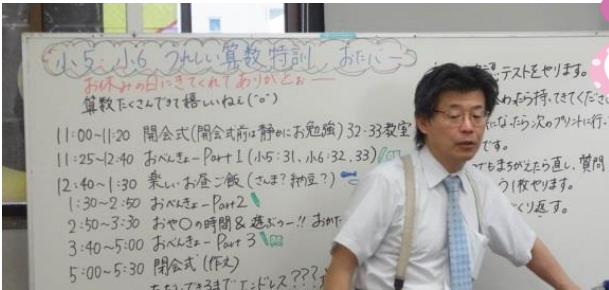 小5、小6 うれしい算数特訓 おたパー
お休みの日にきてくれてありがとぉー
算数たくさんできて嬉しいねぇ(^o^)
11:00~11:20 開会式(開会式前は静かにお勉強) 32・33教室
11:25~12:40 おべんきょーPart1(小5:31、小6:32,33)
12:40~1:30 楽しいお昼ご飯(さんま?納豆?)
1:30~2:50 おべんきょーPart2
2:50~3:30 おや〇の時間&遊ぶぅー!!
3:40~5:00 おべんきょーPart3
5:00~5:30 閉会式(作文)
エンドレス???
テストをやります。
わったら持ってきてくださ
になったら次のプリントに行
です。
てもまちがえたら直し、質問
う1枚やります。
くり返す。